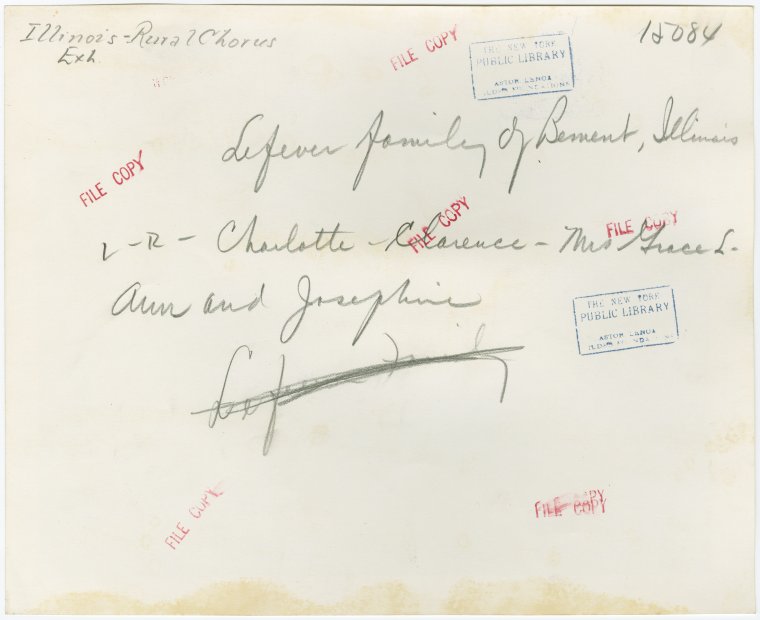 Illinois-Rural Chorus
Exh.
15084
FILE COPY
THE NEW YORK
PUBLIC LIBRARY
ASTOR LENOX
TILDEN FOUNDATIONS
Lefever family of Bement, Illinois
FILE COPY
FILE COPY
FILE COPY
L-R- Charlotte - Clarence - Mrs Grace L-
Ann and Josephine
THE NEW YORK
PUBLIC LIBRARY
ASTOR LENOX
TILDEN FOUNDATIONS
Lefever Family
FILE COPY
FILE COPY